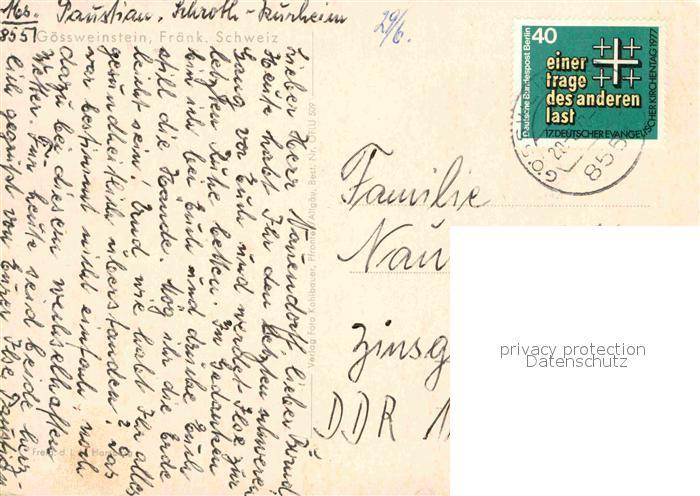 Abs. Paustian, Schroth-Kurheim
8551
Gössweinstein, Fränk. Schweiz
29/6.
Lieber Herr Nauendorff, lieber
Heute habt Ihr den letzten schweren
Gang vor Euch und werdet Ilse zur
letzten Ruhe betten. In Gedanken
bin ich bei Euch und drücke Euch
still die Hände. Mög ihr die Erde
leicht sein! Und wie habt Ihr alles
gesundheitlich überstanden? Das
war bestimmt nicht einfach, noch
dazu bei diesem wechselhaften
Wetter. Für heute seid beide herz-
lich gegrüßt von Eurer Ilse Paustian
Verlag Foto Kohlbauer, Pfronten/Allgäu, Best. Nr. OFLU 509
Freig. d. L.
40
Deutsche Bundespost Berlin
einer
trage
des anderen
last
17. DEUTSCHER EVANGELISCHER KIRCHENTAG 1977
855
Familie
Nau
Zinsg
DDR
privacy protection
Datenschutz